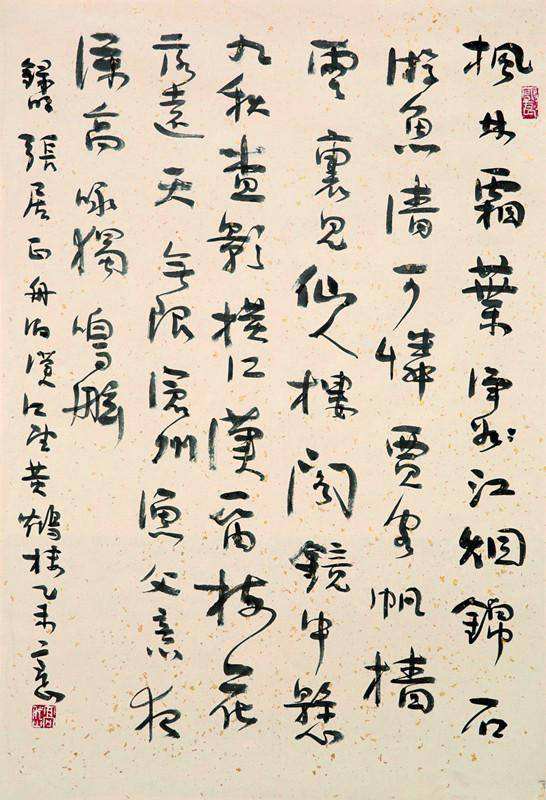 楓林霜葉淨江烟錦石
游魚清可憐賈客帆檣
雲裏見仙人樓閣鏡中懸
九秋查影橫江漢一笛梅花
落遠天無限滄州漁父意夜
深高詠獨鳴舷
錄明張居正舟泊漢江望黃鶴樓乙未